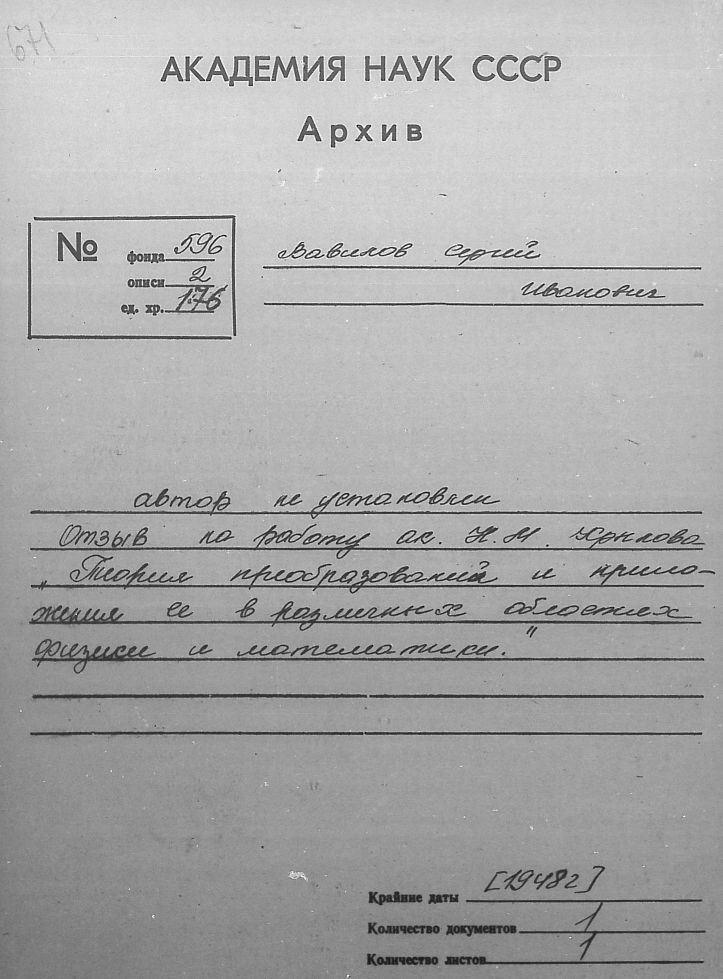 671
АКАДЕМИЯ НАУК СССР
Архив
№ фонда 596
описи 2
ед. хр. 176
Вавилов Сергей
Иванович
автор не установлен
Отзыв на работу ак. Н.М. Крылова
„Теория преобразований и прило-
жения ее в различных областях
физики и математики."
Крайние даты [1948г]
Количество документов 1
Количество листов 1